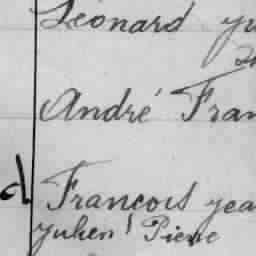 Léonard
André Fran
d François jea
yuhen! Piere